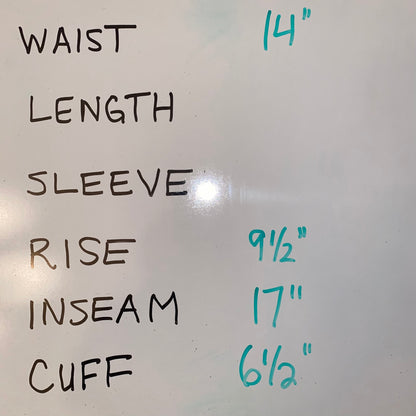 WAIST 14"
LENGTH
SLEEVE
RISE 9 1/2"
INSEAM 17"
CUFF 6 1/2"